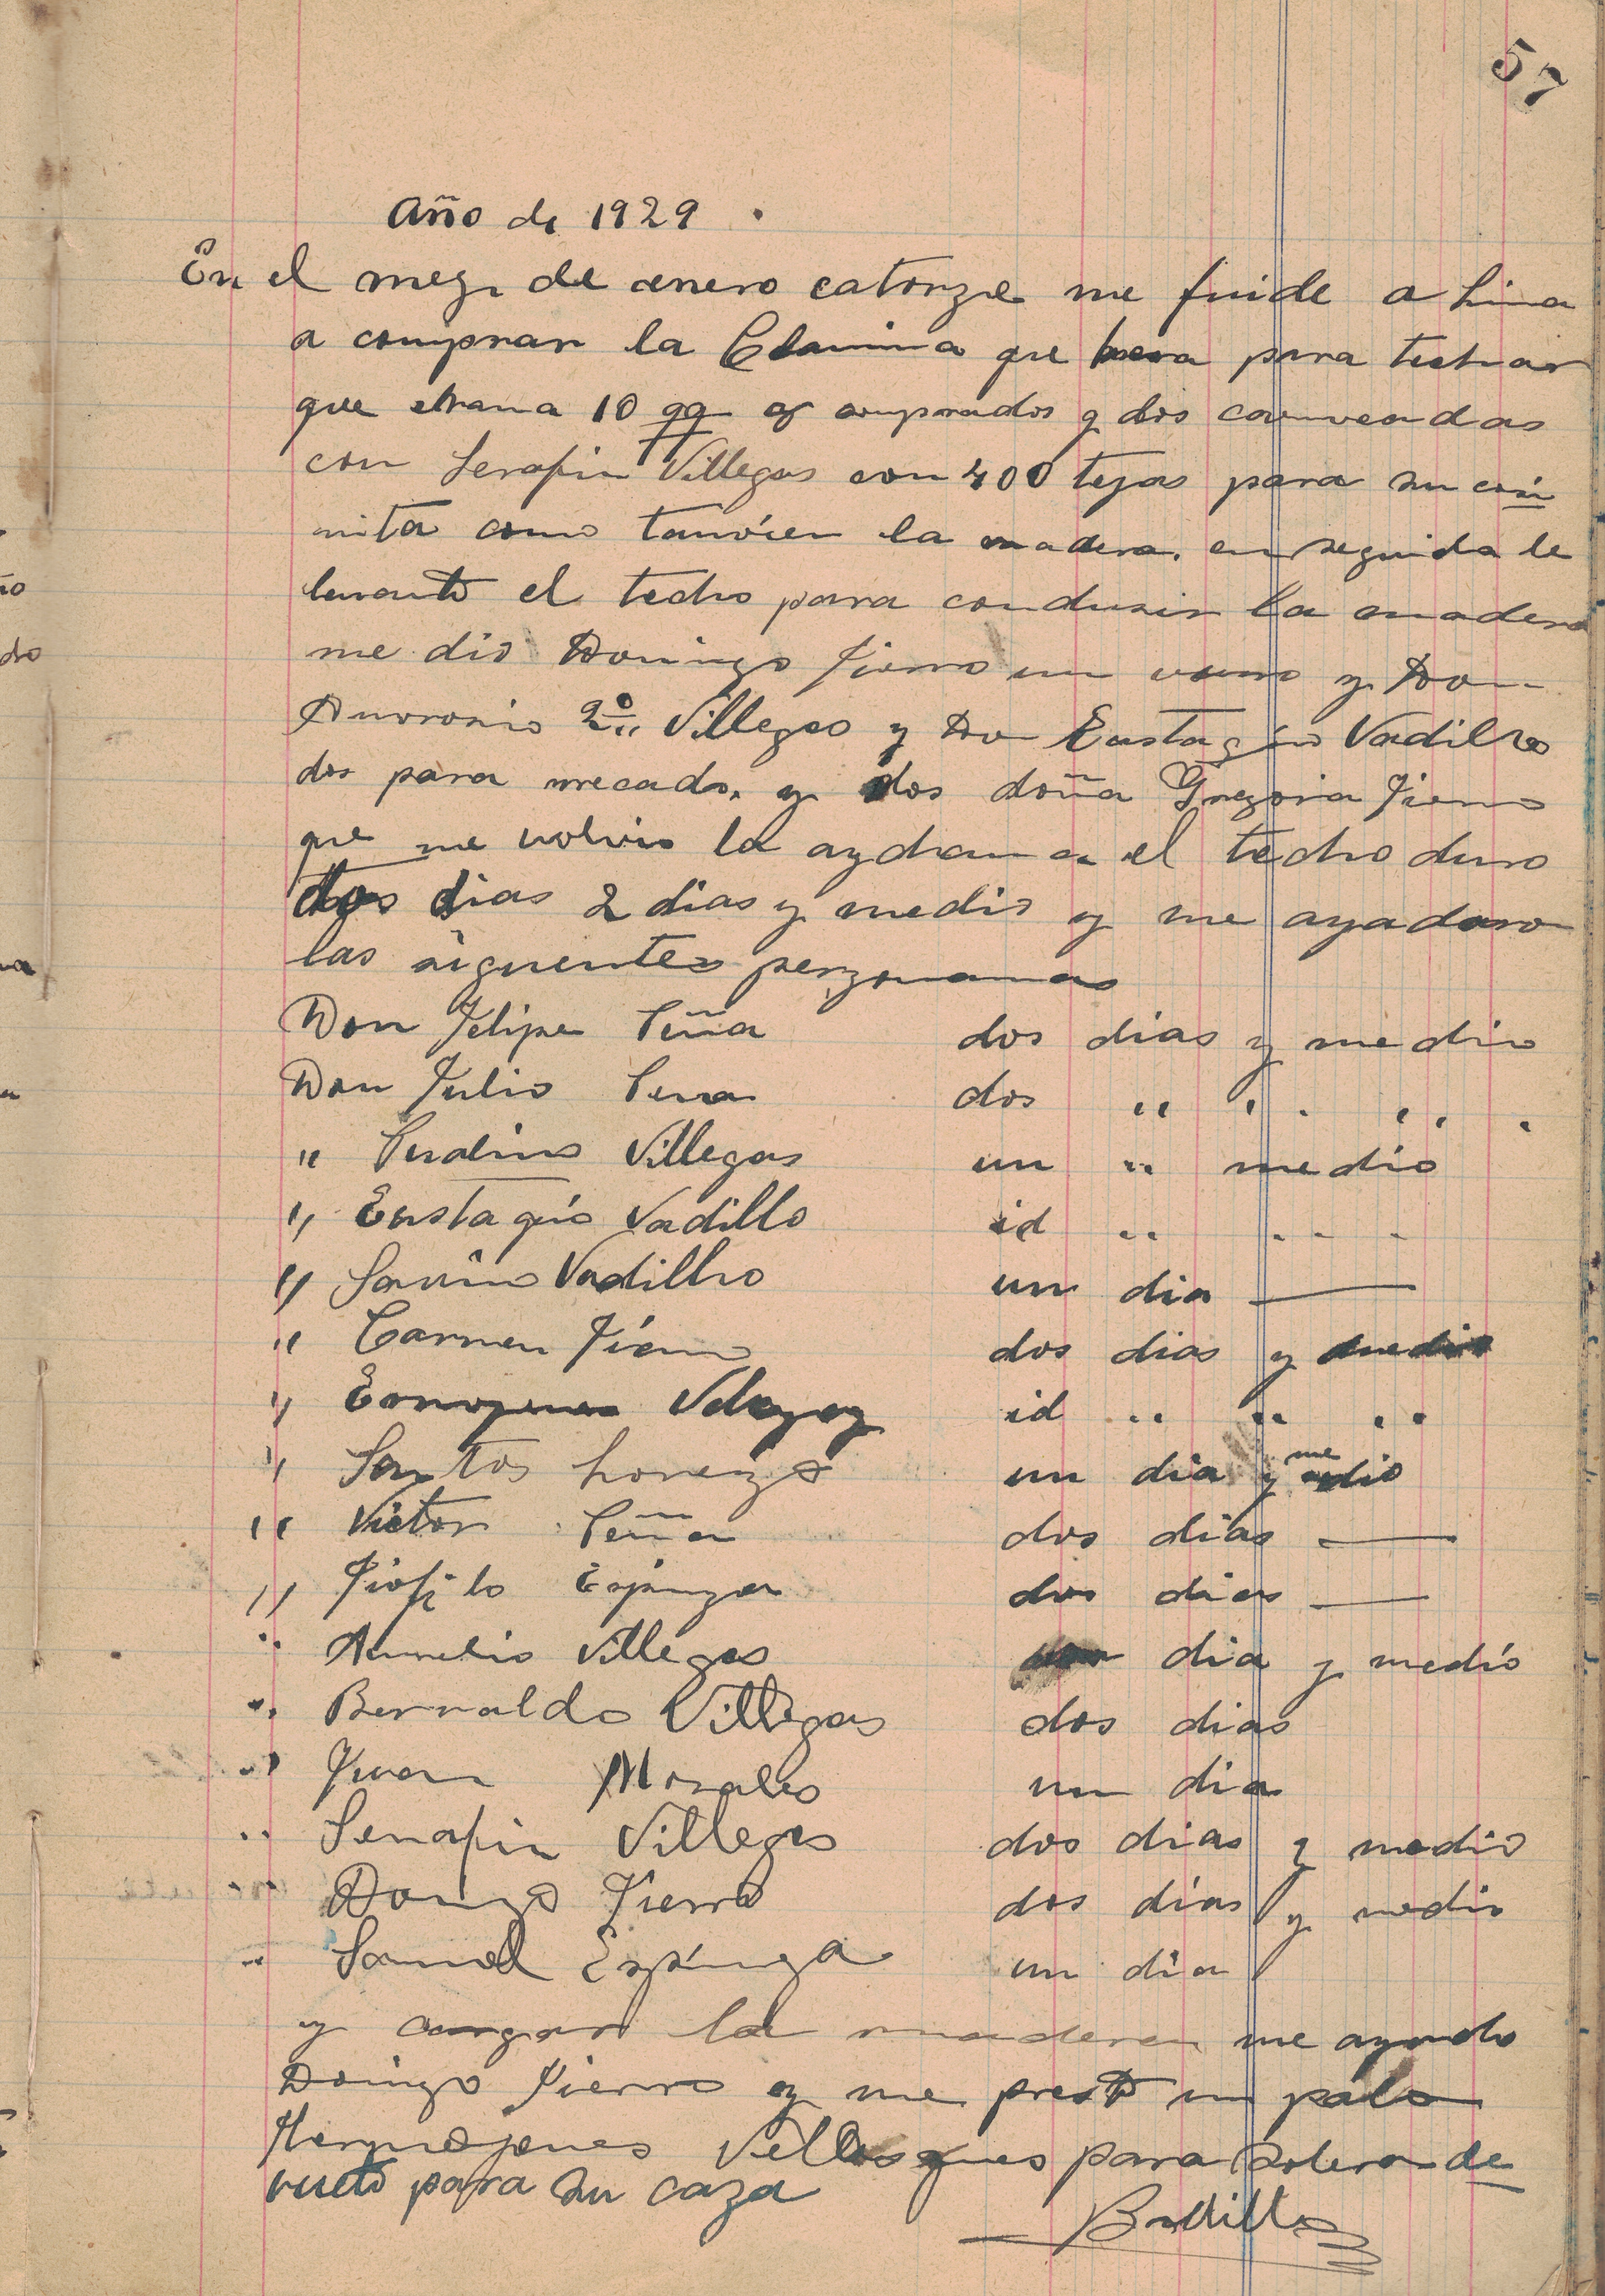 57
Año de 1929 .
En el mez de enero catorze me fuide a Lima
a comprar la Clamina que para techar
que 10 qq comprados y dos
con Serafin Villegas con 400 tejas para su coci
nita como tanvien la madera. en seguida le
levanto el techo para condusir la madera
me dio Domingo Fierro un y Don
2º Villegas y Don Eustaqio Vadillo
dos para y dos doña Gregoria Fierro
que me volvio la el techo duro
dos dias 2 dias y medio y me ayadaro
las siguentes perzonanas
Don Felipe Peña dos dias y medio
Don Julio Pena dos " " "
" Villegas un " medio
" Eustaqio Vadillo id " "
" Savino Vadillo un dia —
" Carmen Fierro dos dias y medio
" id " " "
" Santos Lorenzo un dia y medio
" Victor Peña dos dias —
" Tiofilo Espinza dos dias —
" Aurelio Villegas dia y medio
" Bernaldo Villegas dos dias
" Juan Morales un dia
" Serafin Villegas dos dias y medio
" Fierro dos dias y medio
" Samuel Espinza un dia
y cargar la madera me ayudo
Doingo Fierro y me presto un palo
para solera de
vueto para su caza
Badillo